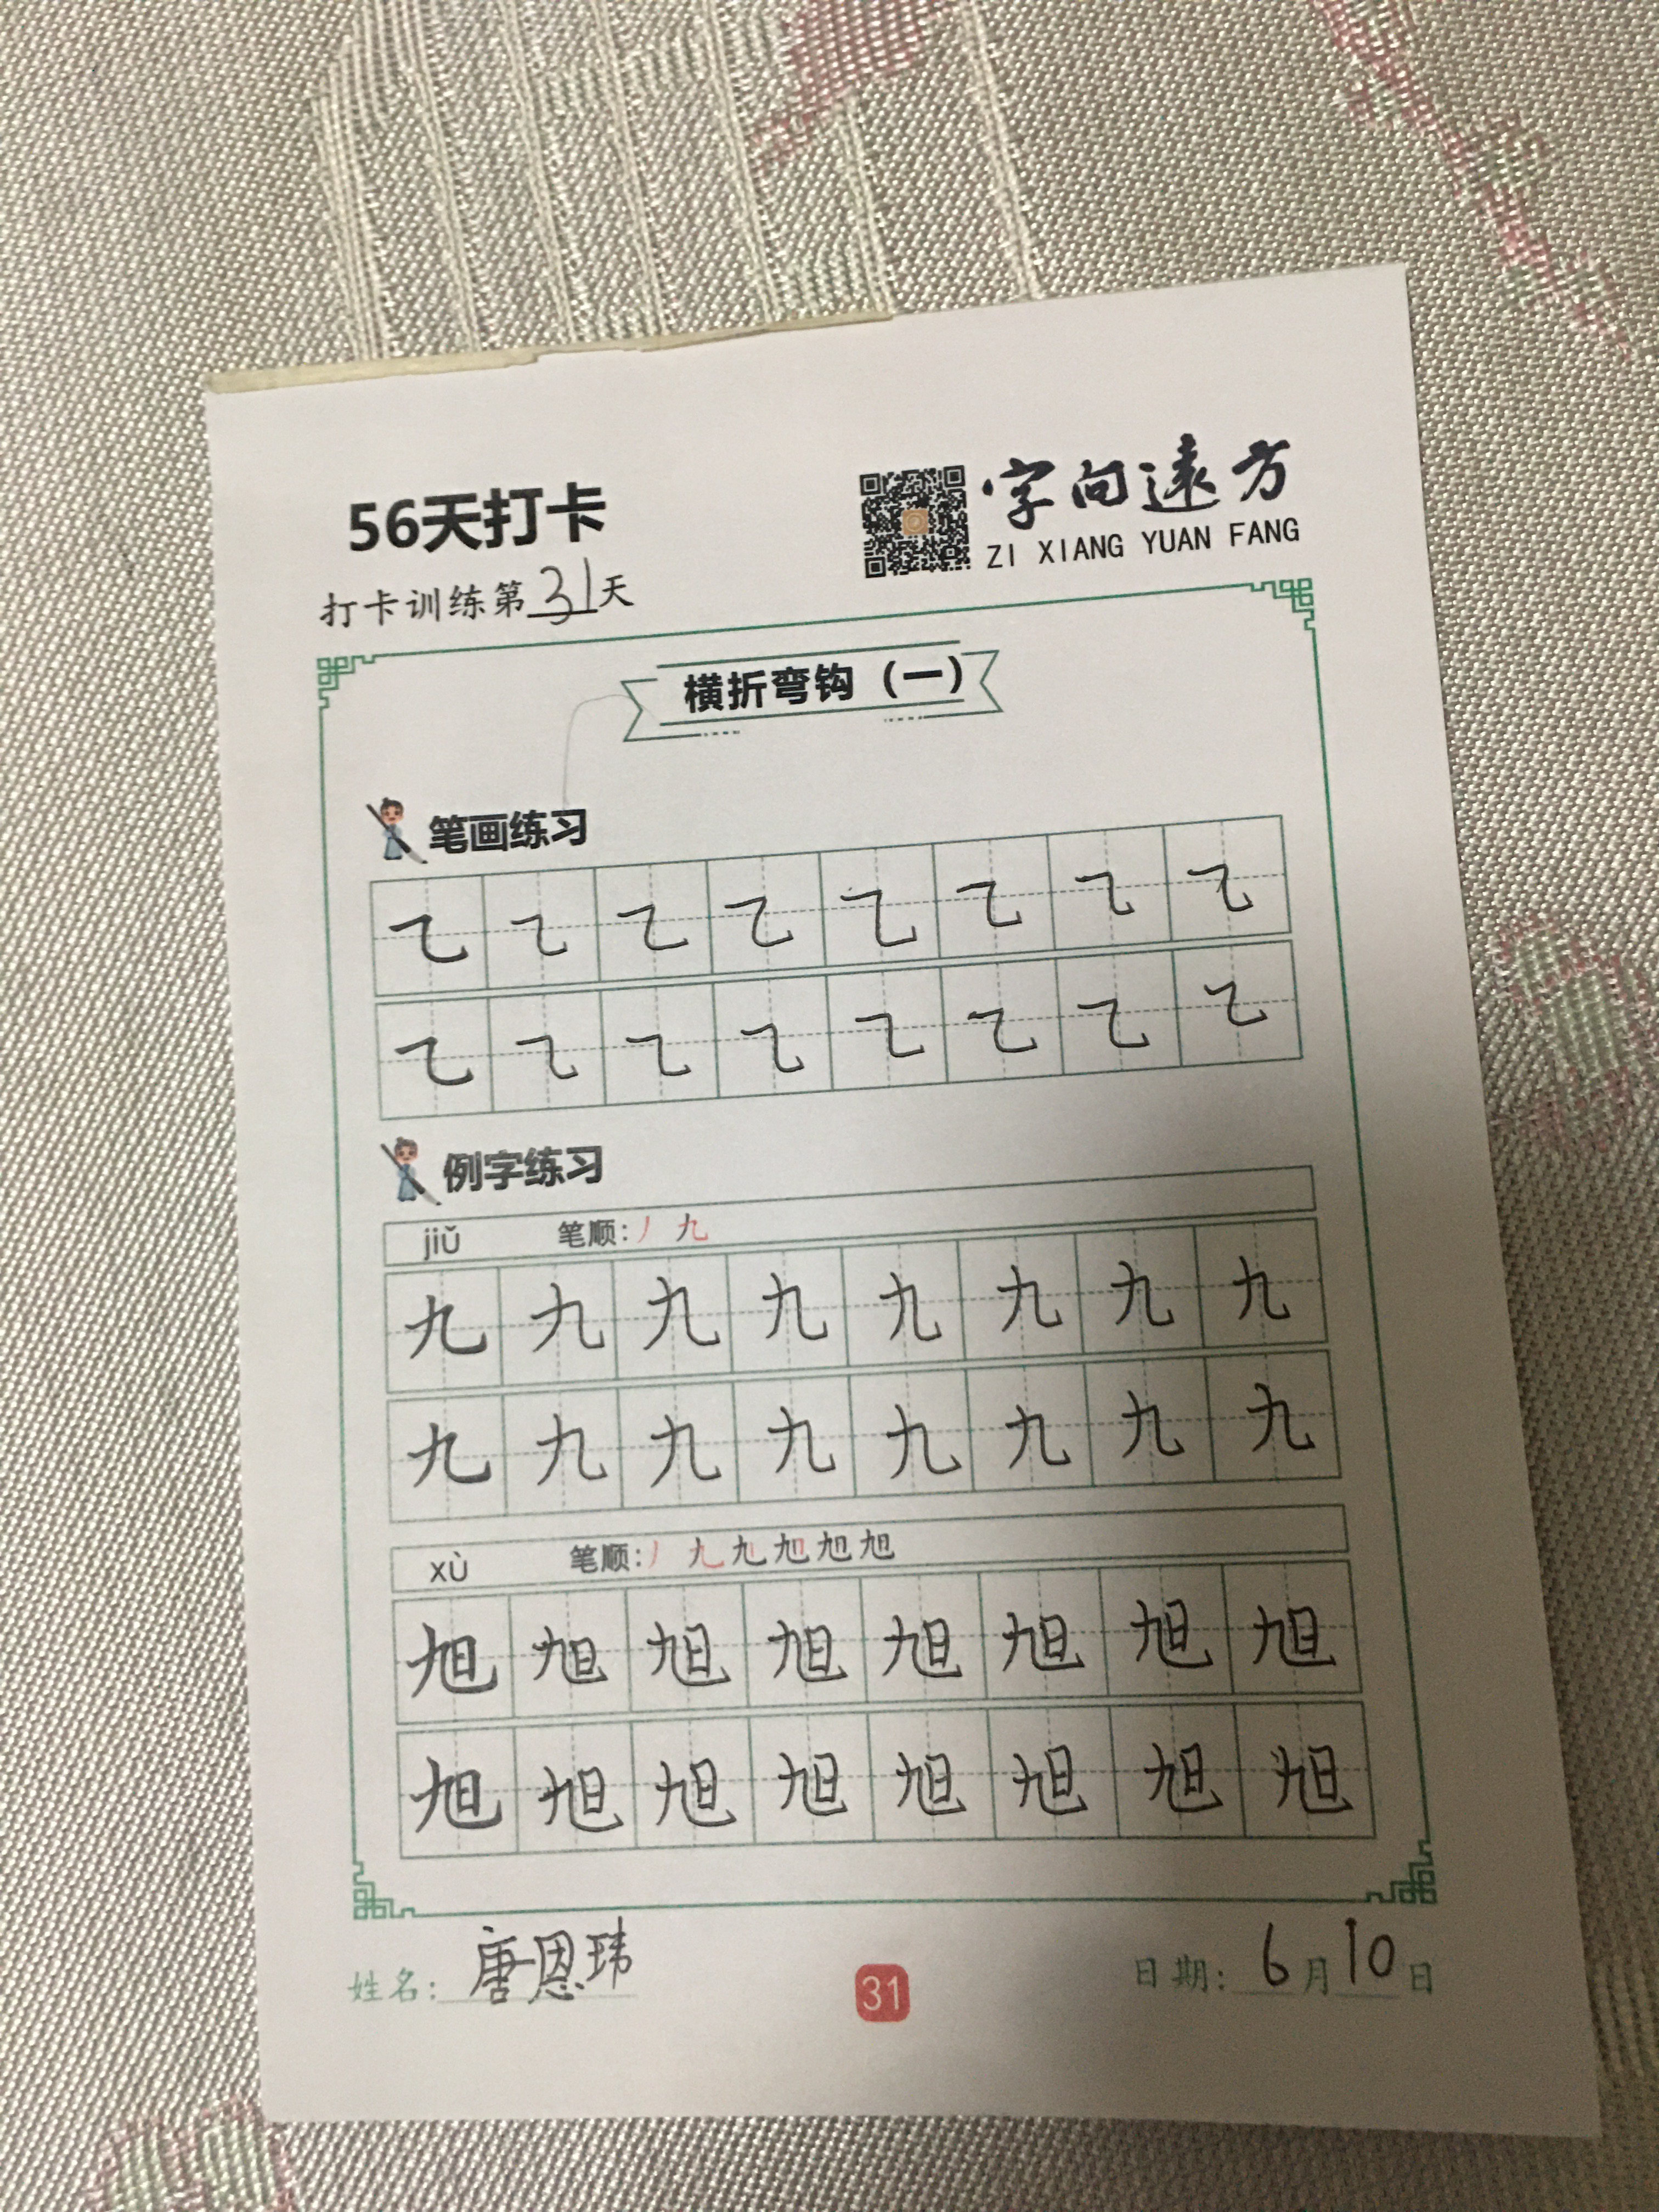 56天打卡
字向远方
ZI XIANG YUAN FANG
打卡训练第31天
横折弯钩（一）
笔画练习
㇈ ㇈ ㇈ ㇈ ㇈ ㇈ ㇈ ㇈
㇈ ㇈ ㇈ ㇈ ㇈ ㇈ ㇈ ㇈
例字练习
jiǔ 笔顺：丿 九
九 九 九 九 九 九 九 九
九 九 九 九 九 九 九 九
xù 笔顺：丿 九 九 旭 旭 旭
旭 旭 旭 旭 旭 旭 旭 旭
旭 旭 旭 旭 旭 旭 旭 旭
姓名：唐恩玮
31
日期：6月10日